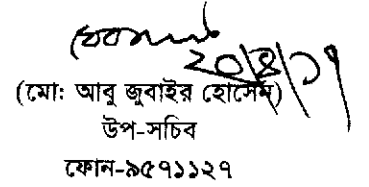 ২০/৪/১৭
(মো: আবু জুবাইর হোসেন)
উপ-সচিব
ফোন-৯৫৭১১২৭